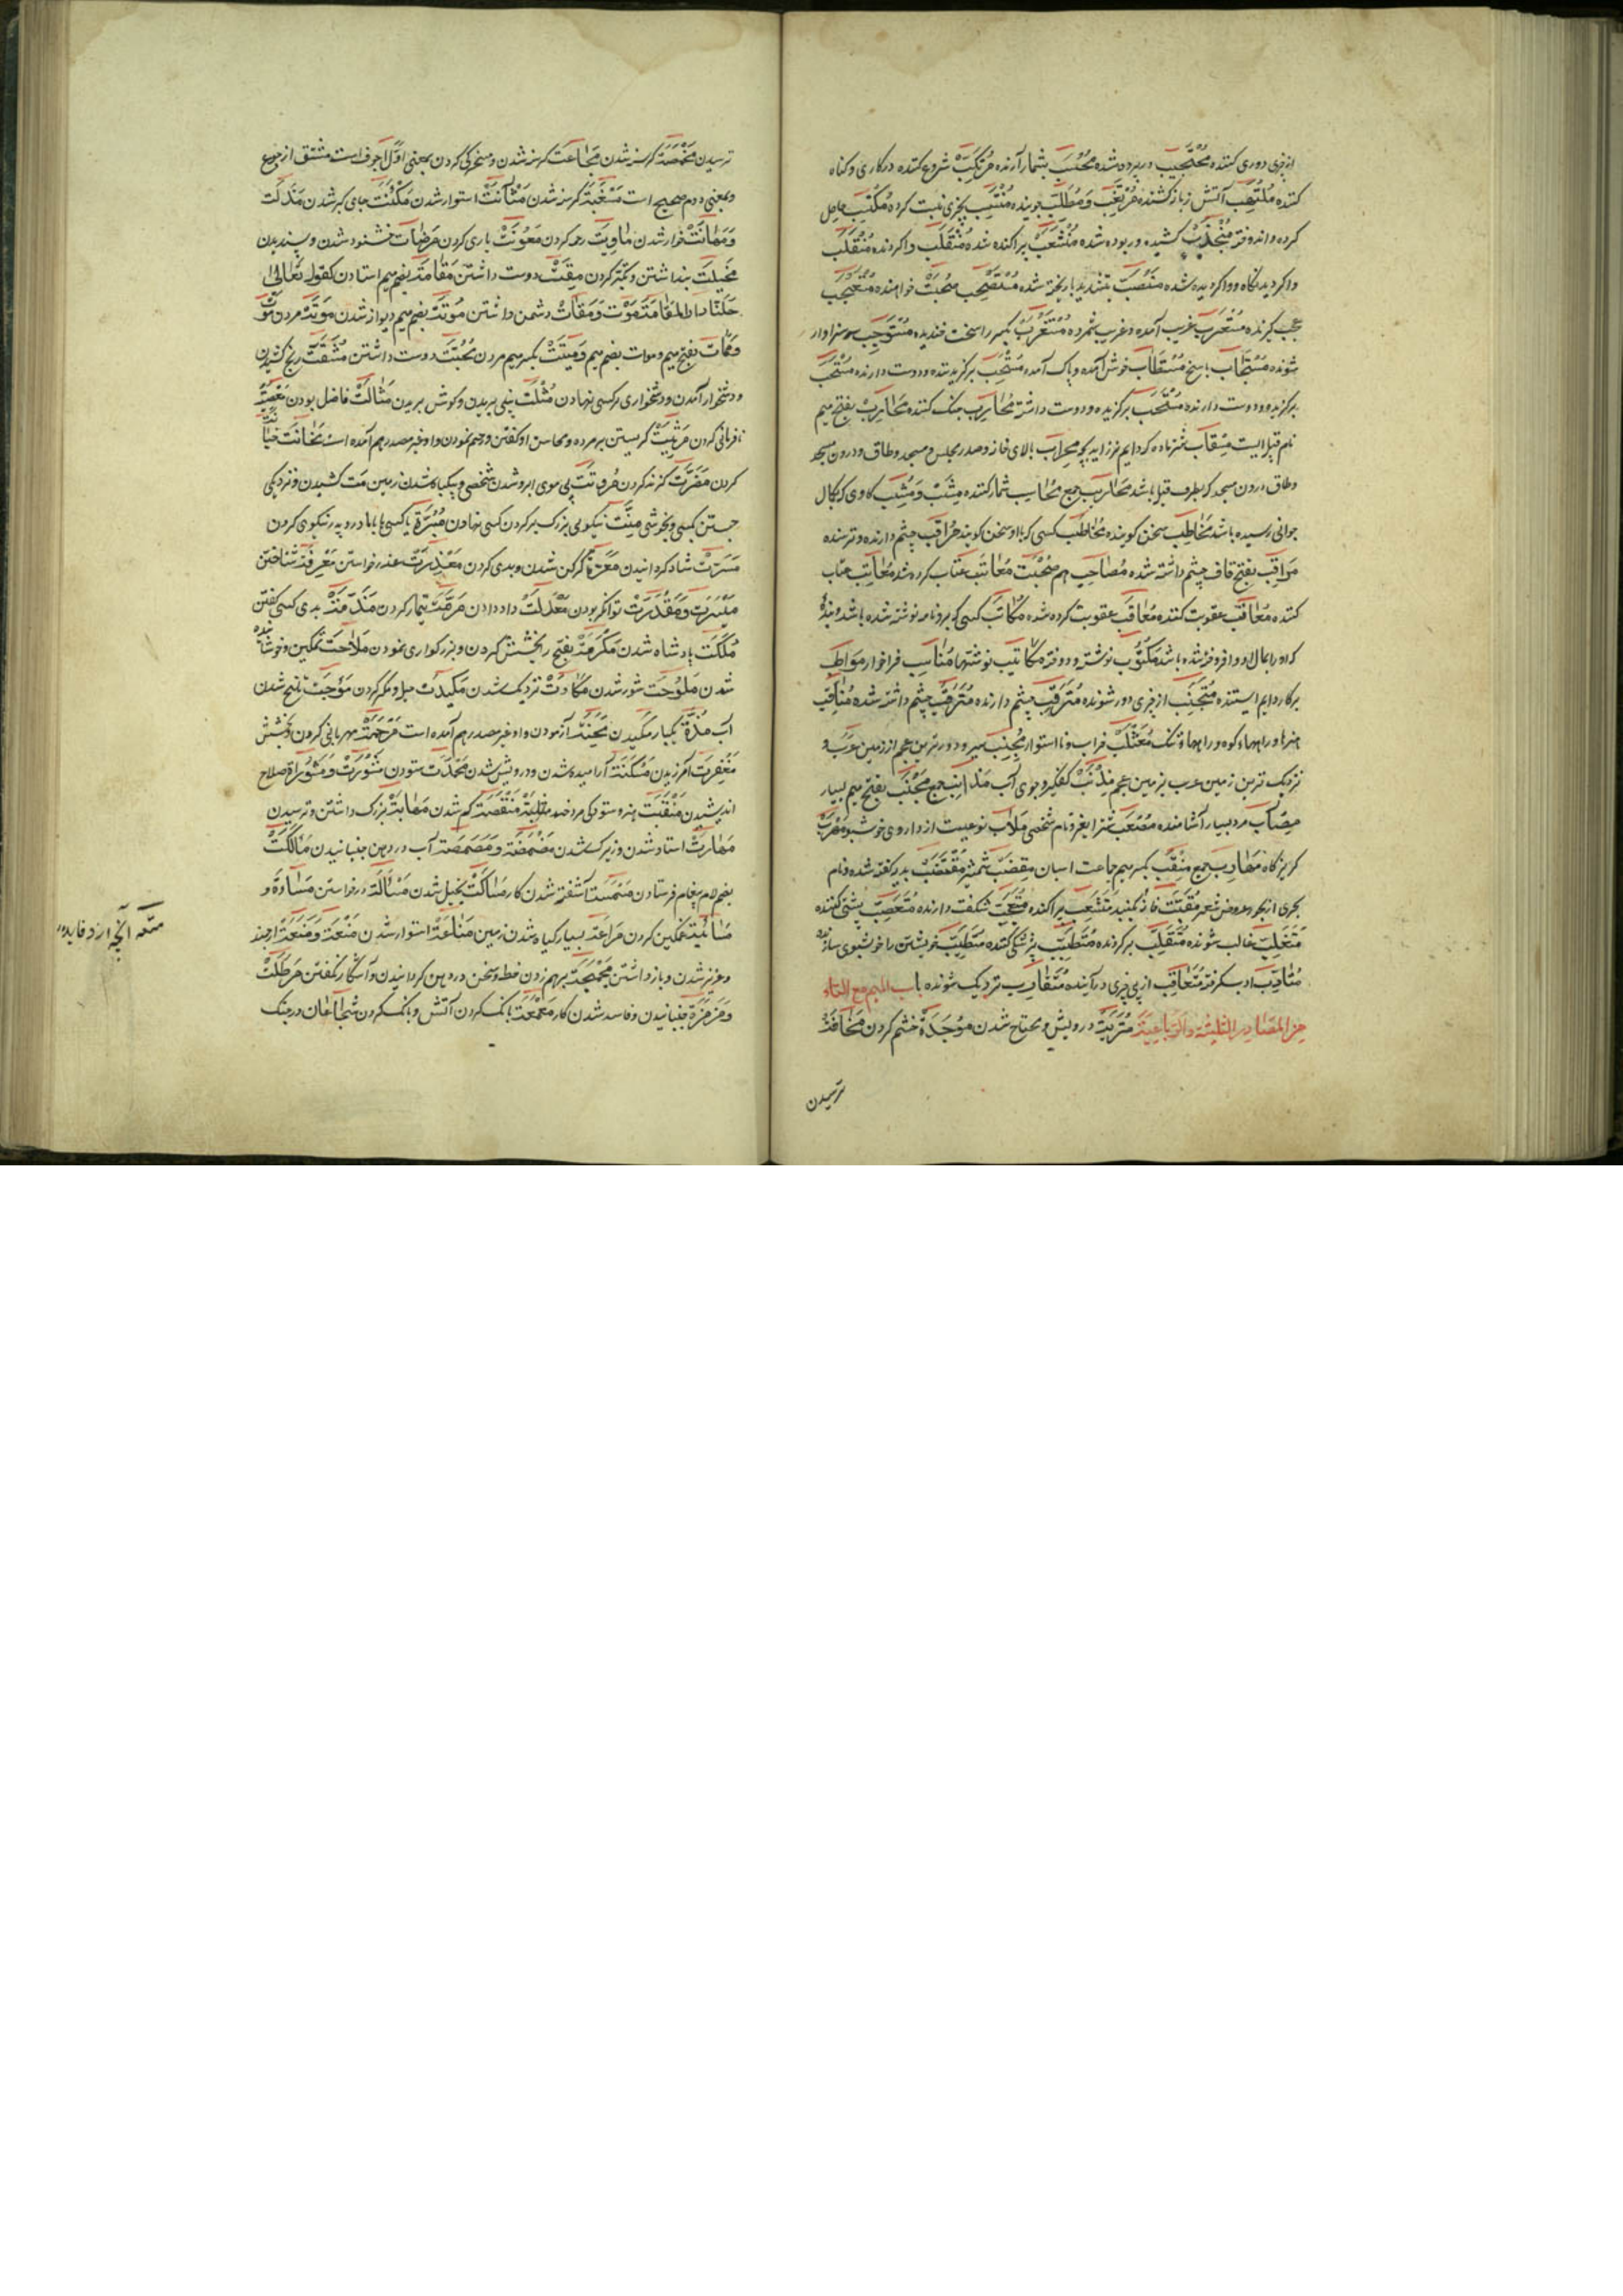 از چیزی دوری کننده مُحْتَجِب در پرده شده مُحْتَسِب بشمار آرنده مُرْتَکِب شروع کننده در کاری و کناه
کننده مُلْتَهِب آتش زبانه کشنده مُرْتَغِب وَ مُطَّلِب جوینده مُنْتَسِب بچیزی نسبت کرده مُکْتَسِب حاصل
کرده و اندوخته مُنْجَذِب کشیده و ربوده شده مُنْشَعِب پراکنده شده مُنْقَلِب واکردنده مُنْقَلَب
واکردیدنگاه و واکردیده شده
عجب گیرنده مُسْتَغْرِب غریب آمده و غریب شمرده سخت خندیده مُسْتَوْجِب سزاوار
شونده مُسْتَجَاب پاسخ مُسْتَطَاب خوش آمده و پاک آمده مُنْتَخِب برگزیننده و دوست دارنده
برگزیده و دوست دارنده برگزیده و دوست داشته مُحَارِب جنک کننده مَحَارِب بفتح میم
نام قبیله ایست مِحْرَاب بالای خانه و صدر مجلس و مسجد و طاق و درون مسجد
وطاق درون مسجد که بطرف قبله باشد مَحَارِیب جمع مُحَاسِب شمار کننده
جوانی رسیده باشد مُخَاطِب سخن کوینده مُخَاطَب کسی که با او سخن کویند مُرَاقِب چشم دارنده و ترسنده
مُرَاقَب بفتح قاف چشم داشته شده مُصَاحِب هم صحبت مُعَاتَب عتاب کرده شده مُعَاتِب عتاب
کننده مُعَاقِب عقوبت کننده مُعَاقَب عقوبت کرده شده مُکَاتَب کسی که برو نامه نوشته شده باشد و بنده
که او را بمال او وا فروخته شده باشد مَکْتُوب نوشته و دوخته مَکَاتِیب نوشتها مُنَاسِب فراخور مُوَاظِب
برکار دایم ایستنده مُتَجَنِّب از چیزی دور شونده مُتَرَقِّب چشم دارنده مُتَرَقَّب چشم داشته شده مَنَاقِب
هنرها و راهها کوه و راهها تنک خراب و نا استوار
نزدیک ترین زمین عرب بزمین عجم مِذْنَب کفکیر و جوی آب مَذَانِب جمع بفتح میم بسیار
مرد بسیار آشامنده مُصْعَب شتر نر و نام شخصی مَلَاب نوعیست از داروی خوشبو مَهْرَب
گریزگاه جمع مِقْنَب بکسر میم جماعت اسبان مِقْضَب شمشیر مُقْتَضَب بدیهه گفته شده و نام
بحری از بحور عروض شعر مُتَشَعِّب پراکنده مُتَعَجِّب شکفت دارنده مُتَعَصِّب پشتی کننده
مُتَغَلِّب غالب شونده مُتَقَلِّب برگردنده مُتَطَبِّب پزشکی کننده مُتَطَیِّب خویشتن را خوشبوی سازنده
مُتَأَدِّب ادب گرفته مُتَعَاقِب از پی چیزی درآینده مُتَقَارِب نزدیک شونده باب المیم مع التاء
من المصادر الثلاثیة والرباعیة مَتْرَبَة درویش و محتاج شدن مَوْجَدَة خشم کردن مَخَافَة
ترسیدن
ترسیدن مَخْمَصَة گرسنه شدن مَجَاعَت گرسنه شدن و مسخرگی کردن بمعنی اول اجوف است مشتق از جوع
و بمعنی دوم صحیح است مَسْغَبَة گرسنه شدن مَتَانَت استوار شدن مَکْنَت جای گیر شدن مَذَلَّت
وَ مَهَانَت خوار شدن رحم کردن مَعُونَت یاری کردن مَرْضَات خشنود شدن و پسندیدن
مَخِیلَت پنداشتن و تکبر کردن مِقَت دوست داشتن مُقَامَة بضم میم استادن کقوله تعالی
دارالمقامة مَقْت وَ مَقَات دشمن داشتن مُوتَة بضم میم دیوانه شدن مَوْتَة مردن
وَ مَمَات بفتح میم و موات بضم میم وَ مِیتَت بکسر میم مردن مَحَبَّت دوست داشتن مَشَقَّت رنج کشیدن
و دشخوار آمدن و دشخواری بر کسی نهادن مُثْلَت بینی بریدن و گوش بریدن مَثَالَت فاضل بودن مَعْصِیَت
نافرمانی کردن مَرْثِیَت گریستن بر مرده و محاسن او گفتن و رحم نمودن و او غیر مصدر هم آمده است مَخَانَت خیانت
کردن مَضَرَّت گزند کردن
جستن بکسی و بخوشی مِنَّت نیکویی بزرگ بر کردن کسی نهادن مَبَرَّة با کسی یا با مادر و پدر نیکوی کردن
مَسَرَّت شاد گردانیدن مَعَرَّة گرگن شدن و بدی کردن مَعْذِرَت عذر خواستن مَعْرِفَت شناختن
مَیْسَرَت وَ مَقْدَرَت توانگر بودن مَعْدَلَت داد دادن مَرَمَّت تیمار کردن مَذَمَّت بدی کسی گفتن
مَلَکَت پادشاه شدن مَکْرَمَت بفتح را بخشش کردن و بزرگواری نمودن مَلَاحَت نمکین و خوش آینده
شدن مُلُوحَت شور شدن نزدیک شدن مَکِیدَت حیل و مکر کردن تلخ شدن
آب یکبار مکیدن مِحْنَت آزمودن و او غیر مصدر هم آمده است مَرْحَمَت مهربانی کردن و بخشش
مَغْفِرَت آمرزیدن مَسْکَنَت آرامیده شدن و درویش شدن مَحْمَدَت ستودن مَشْوَرَت وَ مَشُورَة صلاح
اندیشیدن مَنْقَبَت هنر و ستودگی مرد ضد مَثْلَبَة مَنْقَصَت کم شدن مَهَابَت بزرگ داشتن و ترسیدن
مَهَارَت استاد شدن و زیرک شدن مَضْمَضَة وَ مَصْمَصَة آب در دهن جنبانیدن مَأْلُکَت
بضم لام پیغام فرستادن آشفته شدن کار مَسَاکَت بخیل شدن مَسْأَلَة درخواستن مَسَاءَة وَ
مَسَائِیَة غمگین کردن بسیار گیاه شدن زمین مَنَاعَة استوار شدن مَنْعَة وَ مَنَعَة ارجمند
و عزیز شدن و باز داشتن مَجْمَجَة برهم زدن خط و سخن در دهن گردانیدن و آشکار نگفتن
وَ مَزْمَزَة جنبانیدن و فاسد شدن کار مَعْمَعَة بانک کردن آتش و بانک کردن شجاعان در جنک
متعه آنچه ازو فایده